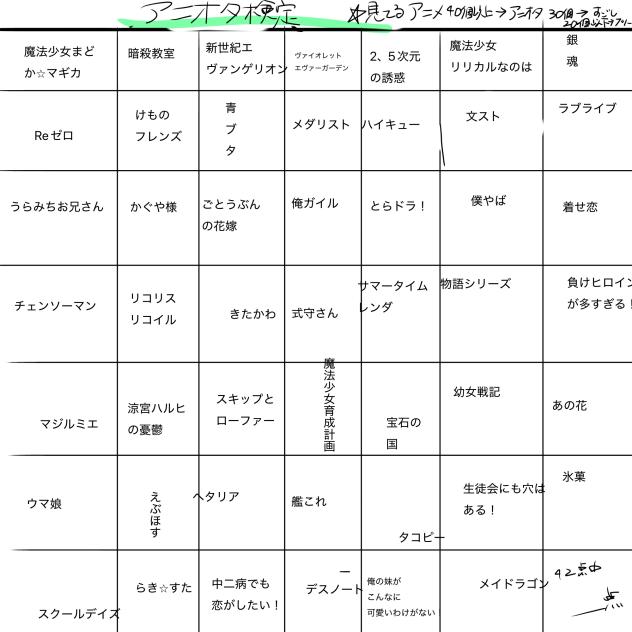 アニオタ検定
見てるアニメ40個以上→アニオタ
30個→すごい
魔法少女まど
か☆マギカ
暗殺教室
新世紀エ
ヴァンゲリオン
ヴァイオレット
エヴァーガーデン
2、5次元
の誘惑
魔法少女
リリカルなのは
銀
魂
Reゼロ
けもの
フレンズ
青
ブ
タ
メダリスト
ハイキュー
文スト
ラブライブ
うらみちお兄さん
かぐや様
ごとうぶん
の花嫁
俺ガイル
とらドラ！
僕やば
着せ恋
チェンソーマン
リコリス
リコイル
きたかわ
式守さん
サマータイム
レンダ
物語シリーズ
負けヒロイン
が多すぎる！
マジルミエ
涼宮ハルヒ
の憂鬱
スキップと
ローファー
魔法少女育成計画
宝石の
国
幼女戦記
あの花
ウマ娘
えぶほす
ヘタリア
艦これ
タコピー
生徒会にも穴は
ある！
氷菓
スクールデイズ
らき☆すた
中二病でも
恋がしたい！
デスノート
俺の妹が
こんなに
可愛いわけがない
メイドラゴン
42点中
点